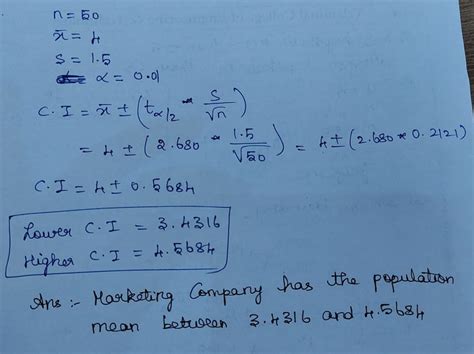 n = 50
x̄ = 4
S = 1.5
α = 0.01
C.I = x̄ ± (t α/2 * S/√n)
= 4 ± (2.680 * 1.5/√50) = 4 ± (2.680 * 0.2121)
C.I = 4 ± 0.5684
Lower C.I = 3.4316
Higher C.I = 4.5684
Ans :- Marketing Company has the population
mean between 3.4316 and 4.5684